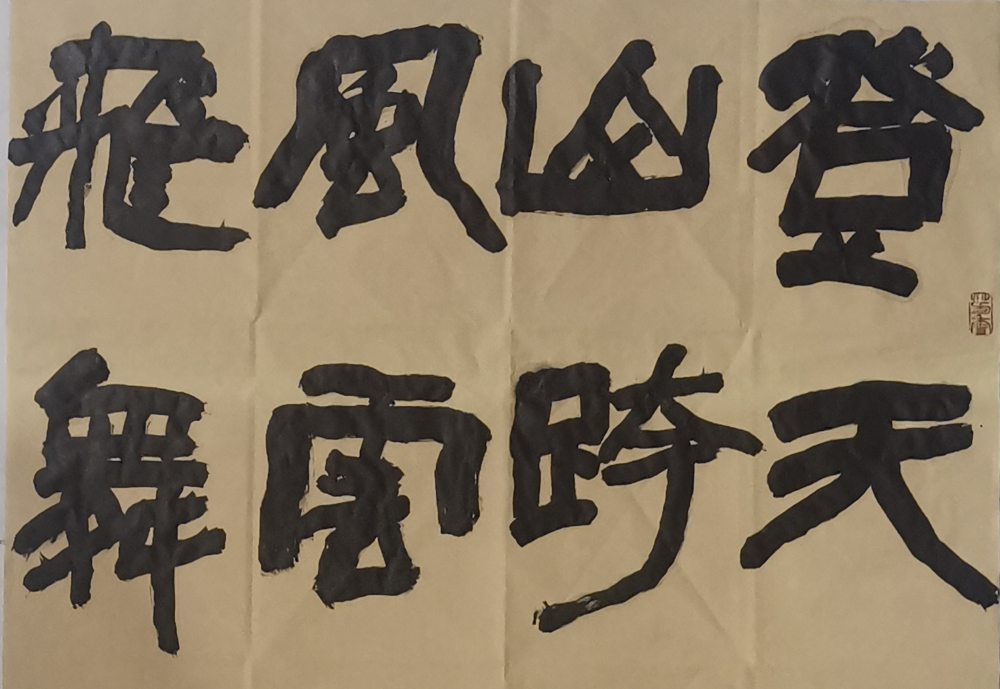 登天
山跨
風雲
飛舞